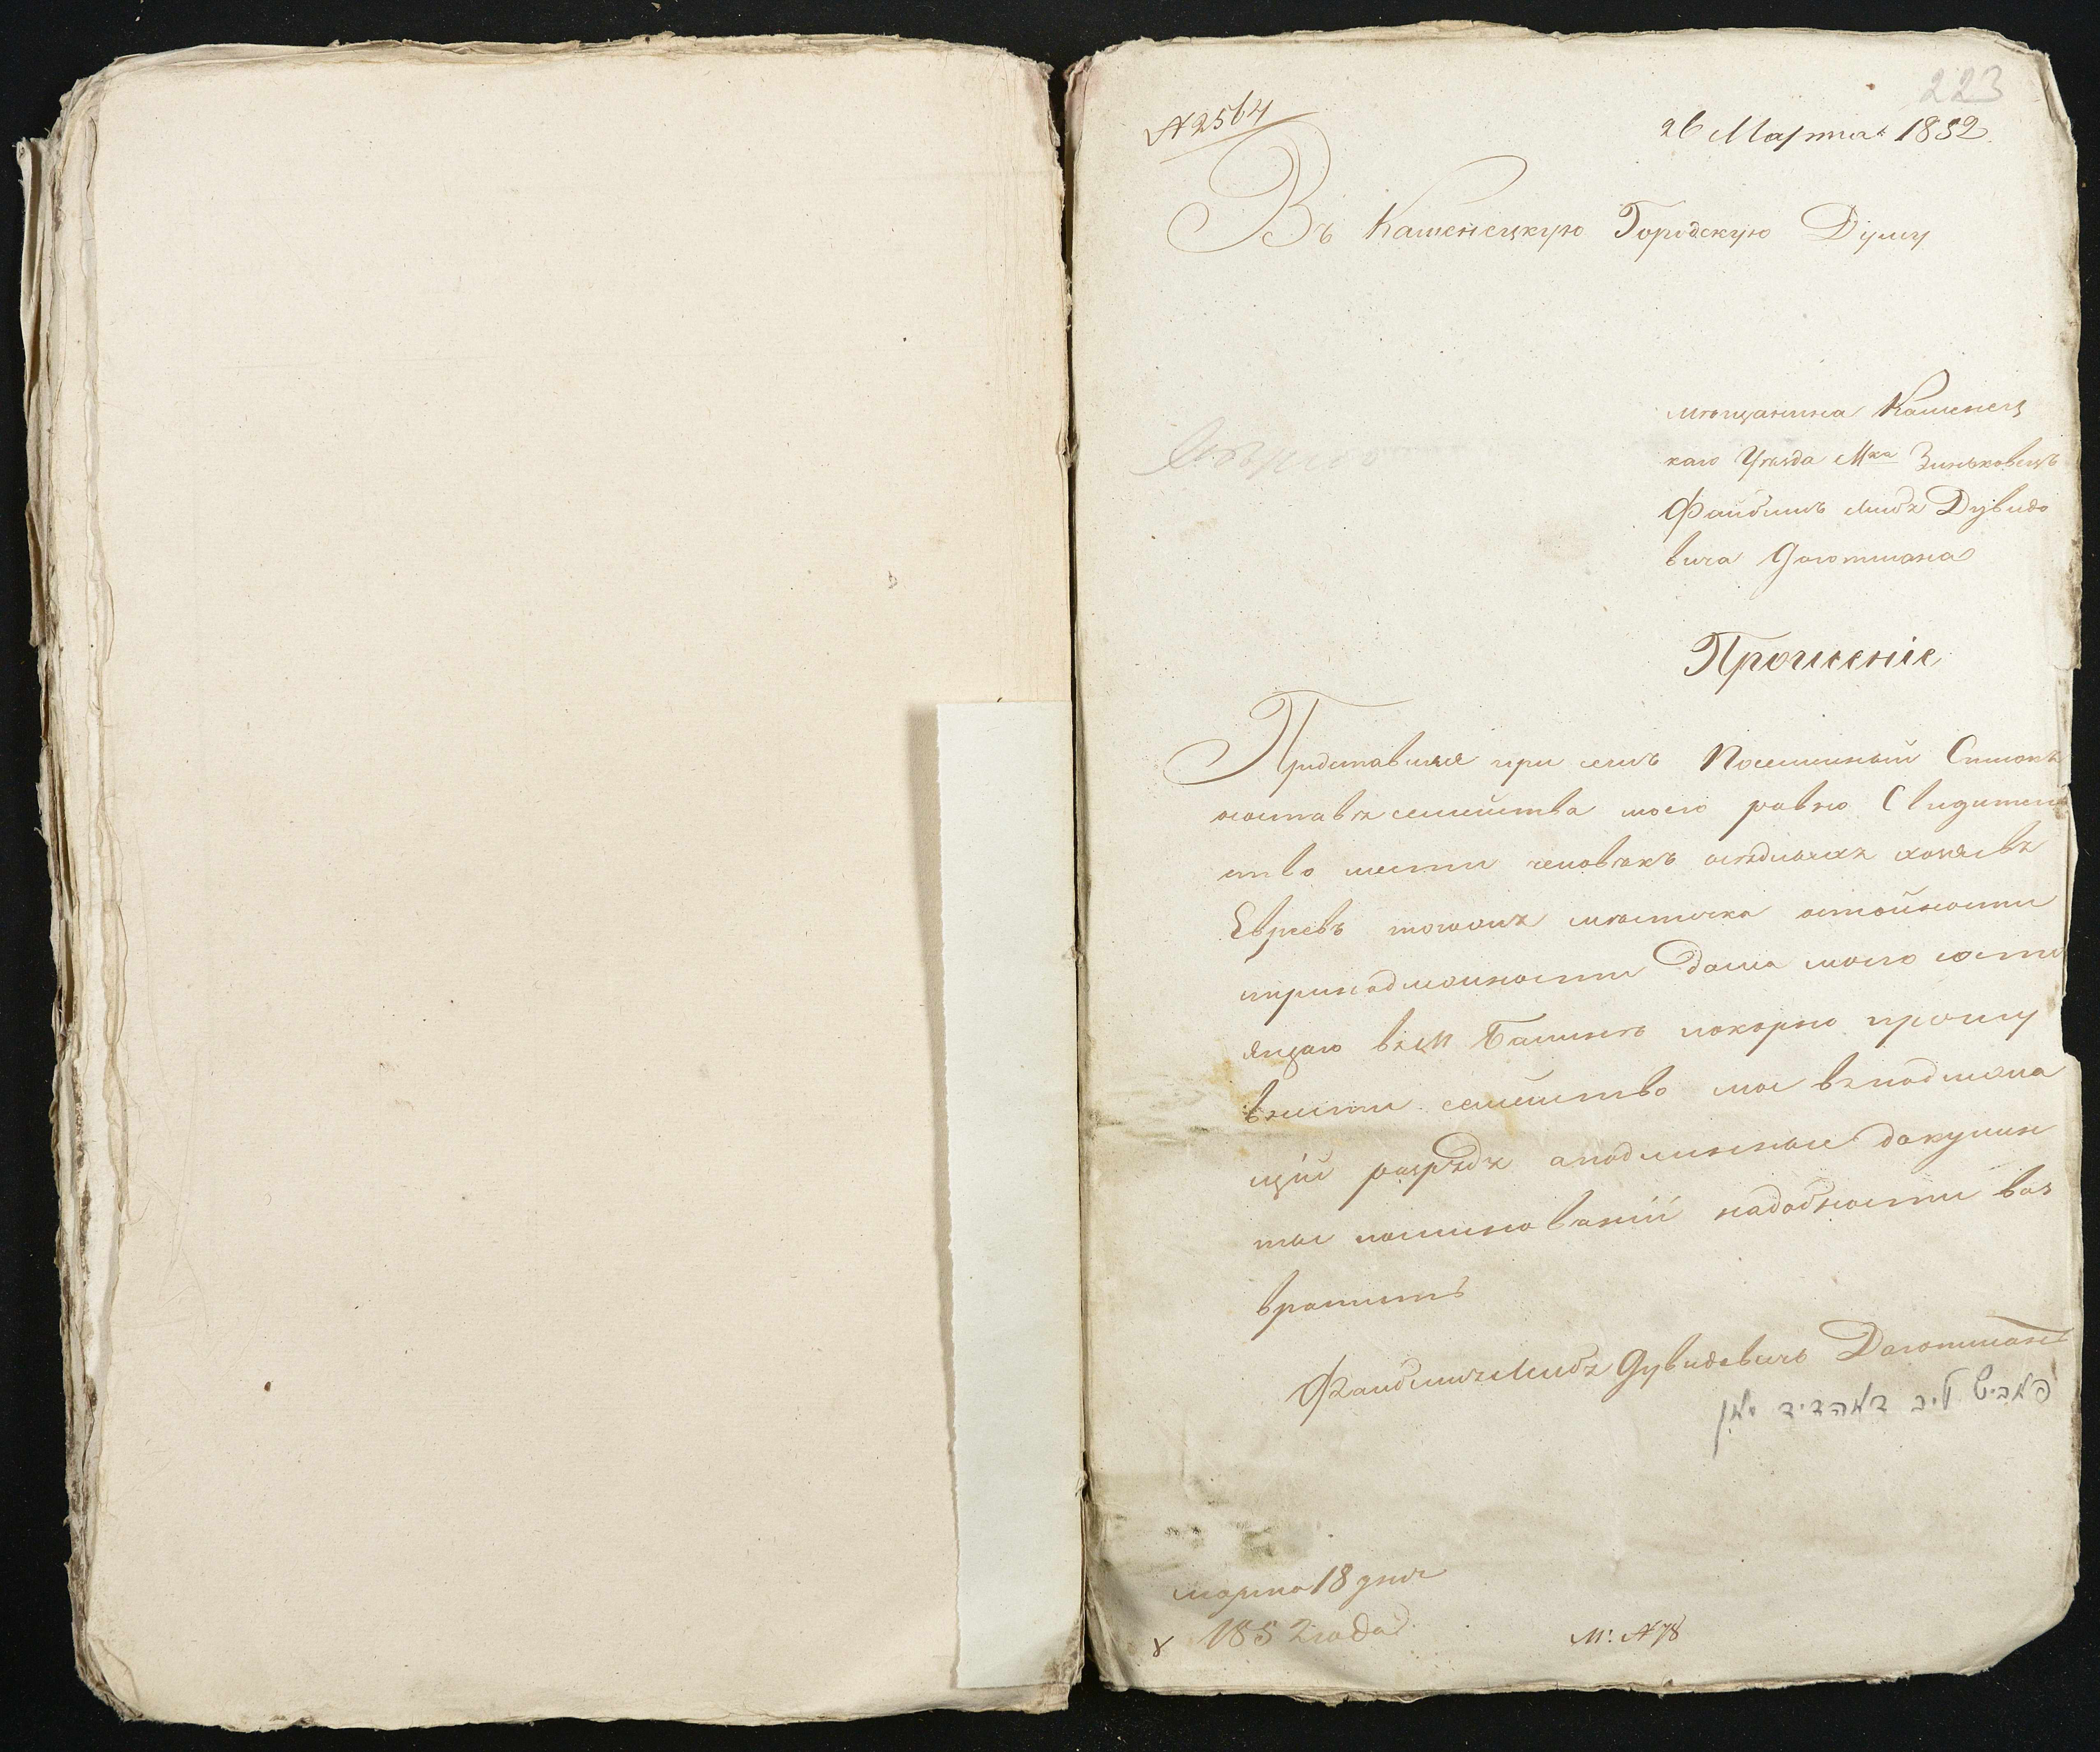 223
№ 2564
26 Марта 1852.
Въ Каменецкую Городскую Думу
мѣщанина Каменец
каго Уѣзда Мка Зиньковецъ
Файбишъ Лейбъ Дувидо
вича
Прошение
Представляя при семъ Посемейный Списокъ
составъ семейства моего равно Свидител
ство шести человѣкъ осѣдлыхъ хозяевъ
Евреевъ тогожъ мѣстечка остойности
принадлежности дома моего состо
ящаго въ покорно прошу
внести семейство мое въ подлежа
щій разрядъ а подлинные докумен
ты по миновании надобности воз
вратить
Файбишъ Лейбъ Дувидовичъ
פאביש ליב
марта 18 дня
1852 года
М: № 78